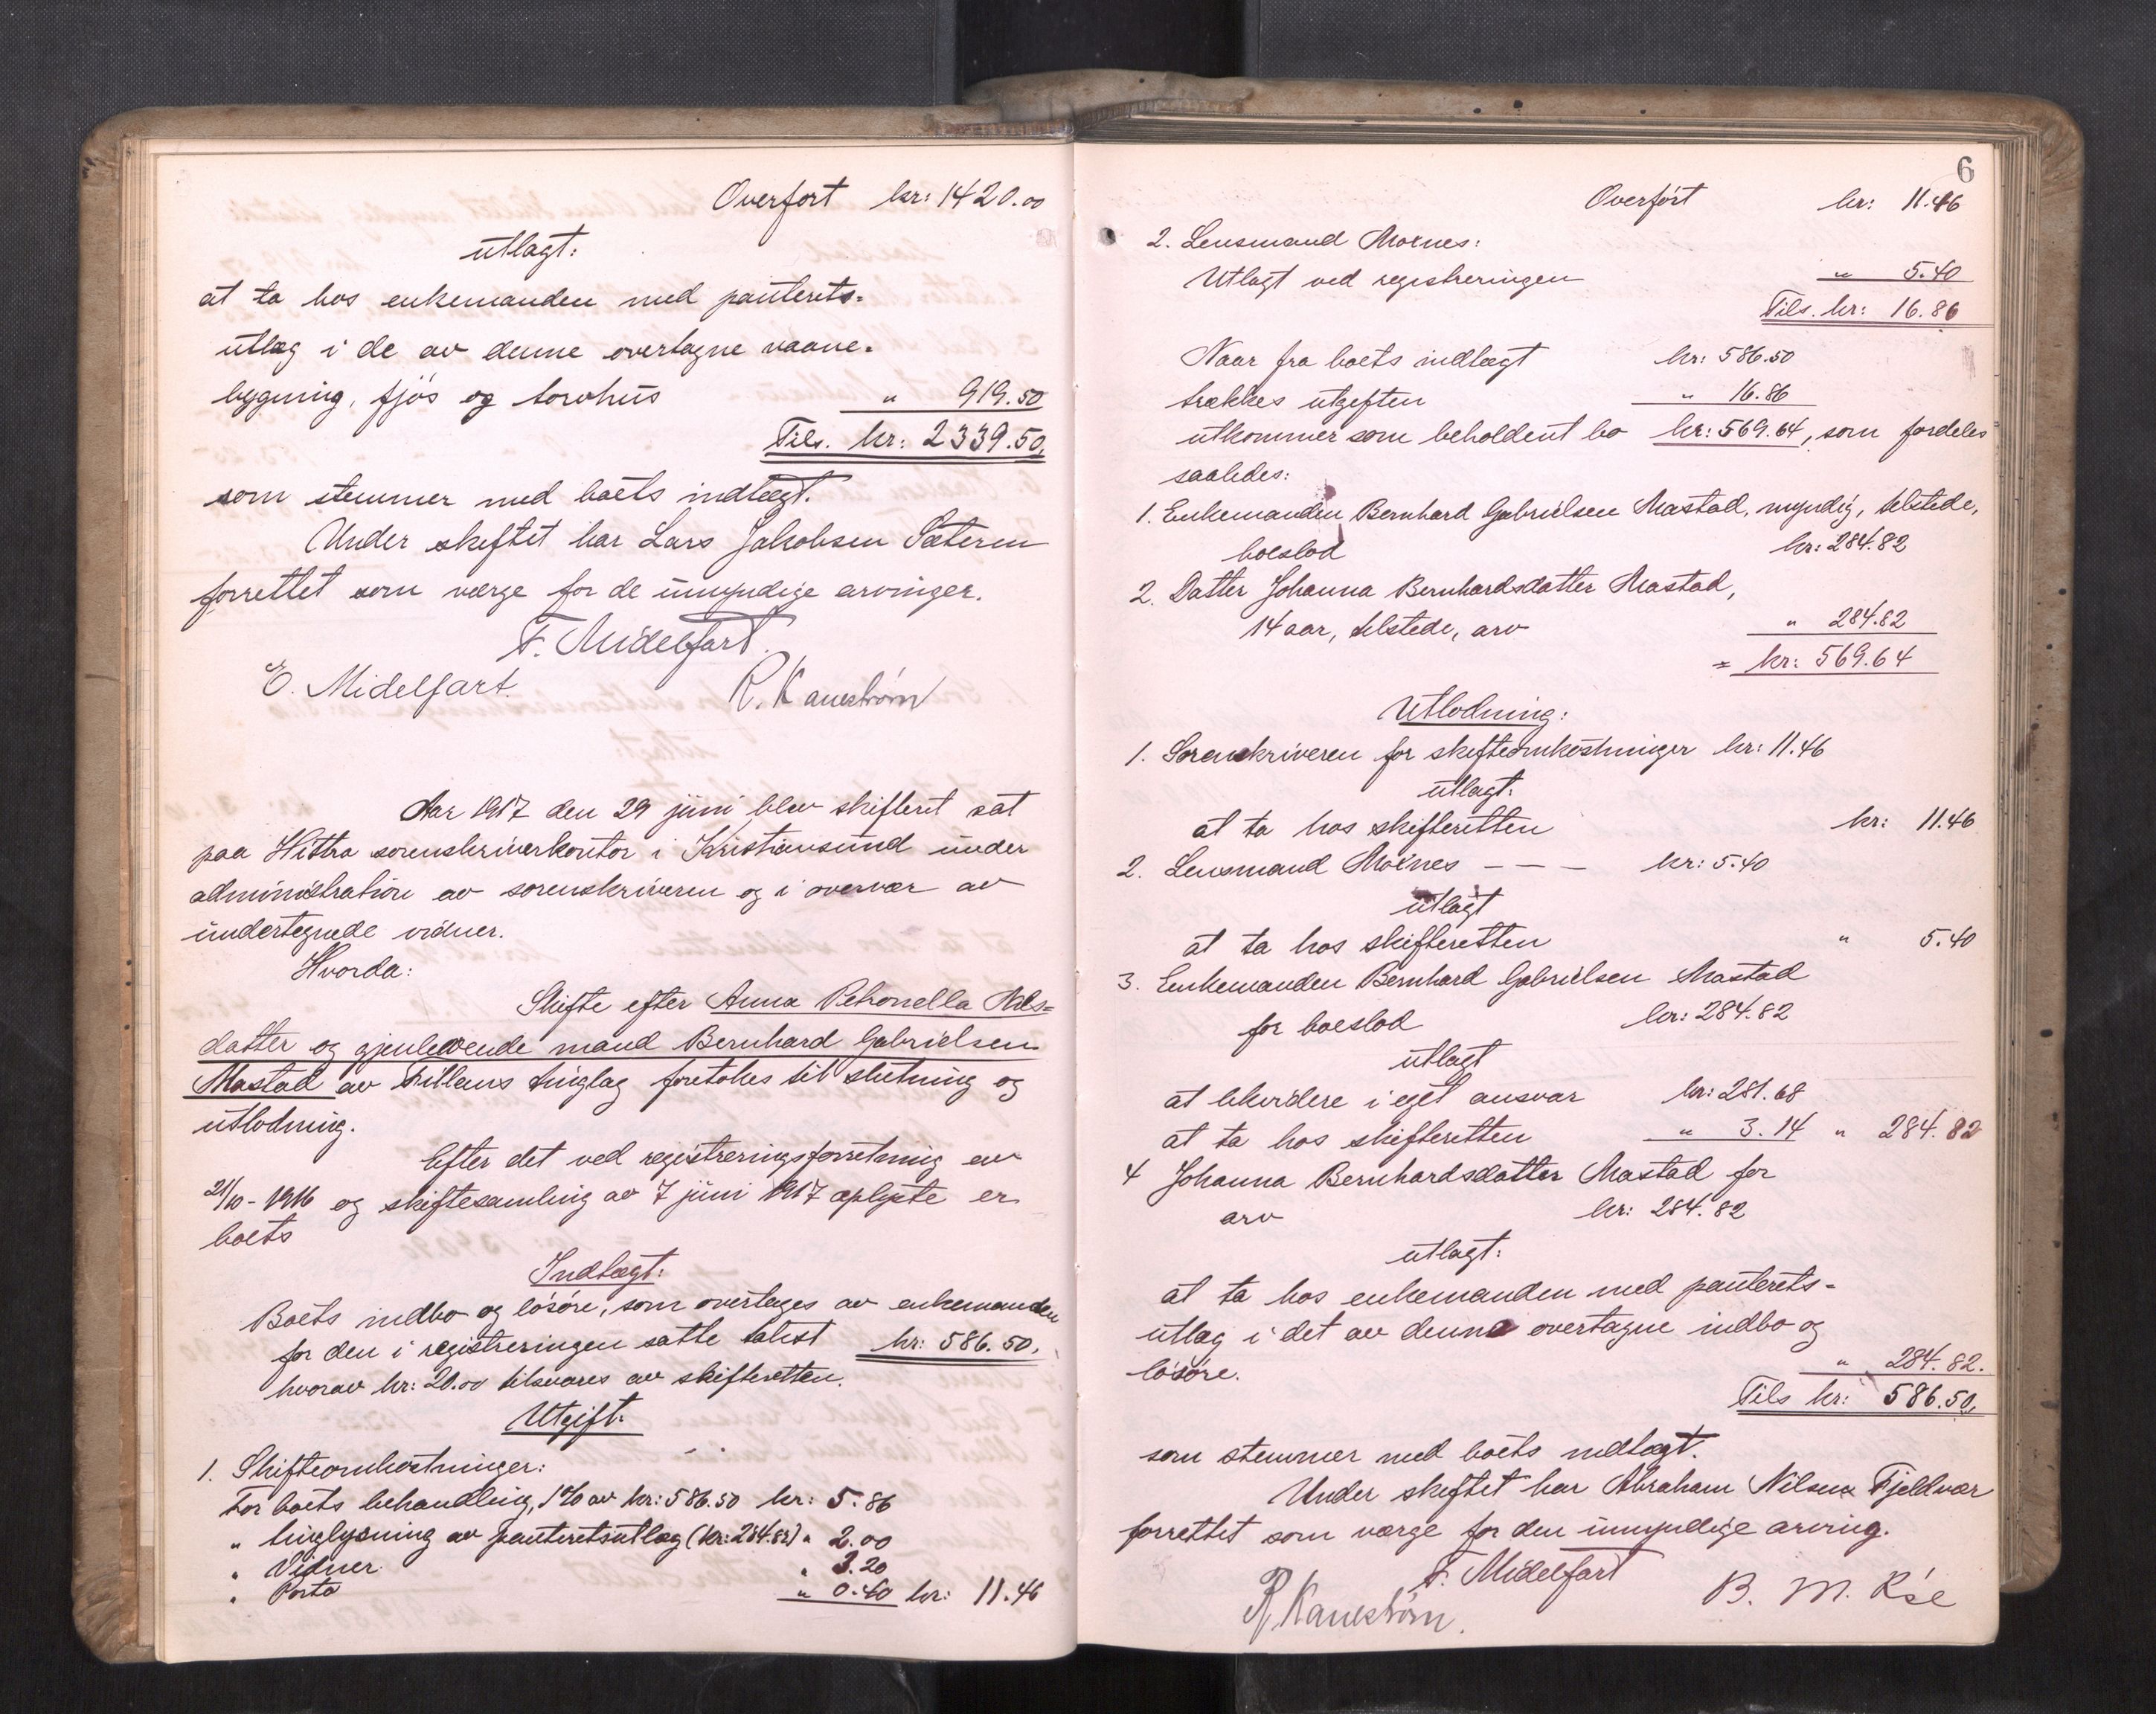 Overført kr: 1420.00
utlagt:
at ta hos enkemanden med panterets-
utlæg i de av denne overtagne vaane-
bygning, fjøs og torvhus " 919.50
Tils. kr: 2339.50,
som stemmer med boets indtægt.
Under skiftet har Lars Jakobsen Sæteren
forrettet som værge for de umyndige arvinger.
F. Midelfart.
E. Midelfart. R. Kanestrøm
Aar 1917 den 29 juni blev skifteret sat
paa Hittra sorenskriverkontor i Kristiansund under
administration av sorenskriveren og i overvær av
undertegnede vidner.
Hvorda:
Skifte efter Anna Petronella Nils-
datter og gjenlevende mand Bernhard Gabrielsen
Mastad av Fillans tinglag foretokes til slutning og
utlodning.
Efter det ved registreringsforretning av
21/10 - 1916 og skiftesamling av 7 juni 1917 oplyste er
boets
Indtægt:
Boets indbo og løsøre, som overtages av enkemanden
for den i registreringen satte takst kr: 586.50,
hvorav kr: 20.00 tilsvares av skifteretten.
Utgift:
1. Skifteomkostninger:
For boets behandling, 1% av kr: 586.50 kr: 5.86
" tinglysning av panteretsutlæg (kr: 284.82) " 2.00
" Vidner " 3.20
" Porto " 0.40 kr: 11.46
6
Overført kr: 11.46
2. Lensmand Moxnes:
Utlagt ved registreringen " 5.40
Tils. kr: 16.86
Naar fra boets indtægt kr: 586.50
trækkes utgiften " 16.86
utkommer som beholdent bo kr: 569.64, som fordeles
saaledes:
1. Enkemanden Bernhard Gabrielsen Mastad, myndig, tilstede,
boeslod kr: 284.82
2. Datter Johanna Bernhardsdatter Mastad,
14 aar, tilstede, arv " 284.82
= kr: 569.64
Utlodning:
1. Sorenskriveren for skifteomkostninger kr: 11.46
utlagt:
at ta hos skifteretten kr: 11.46
2. Lensmand Moxnes - - - kr: 5.40
utlagt
at ta hos skifteretten " 5.40
3. Enkemanden Bernhard Gabrielsen Mastad
for boeslod kr: 284.82
utlagt
at likvidere i eget ansvar kr: 281.68
at ta hos skifteretten " 3.14 " 284.82
4 Johanna Bernhardsdatter Mastad for
arv kr: 284.82
utlagt:
at ta hos enkemanden med panterets-
utlæg i det av denne overtagne indbo og
løsøre. " 284.82.
Tils kr: 586.50,
som stemmer med boets indtægt.
Under skiftet har Abraham Nilsen Fjeldvær
forrettet som værge for den umyndige arving.
F. Midelfart
R. Kanestrøm. B. M.